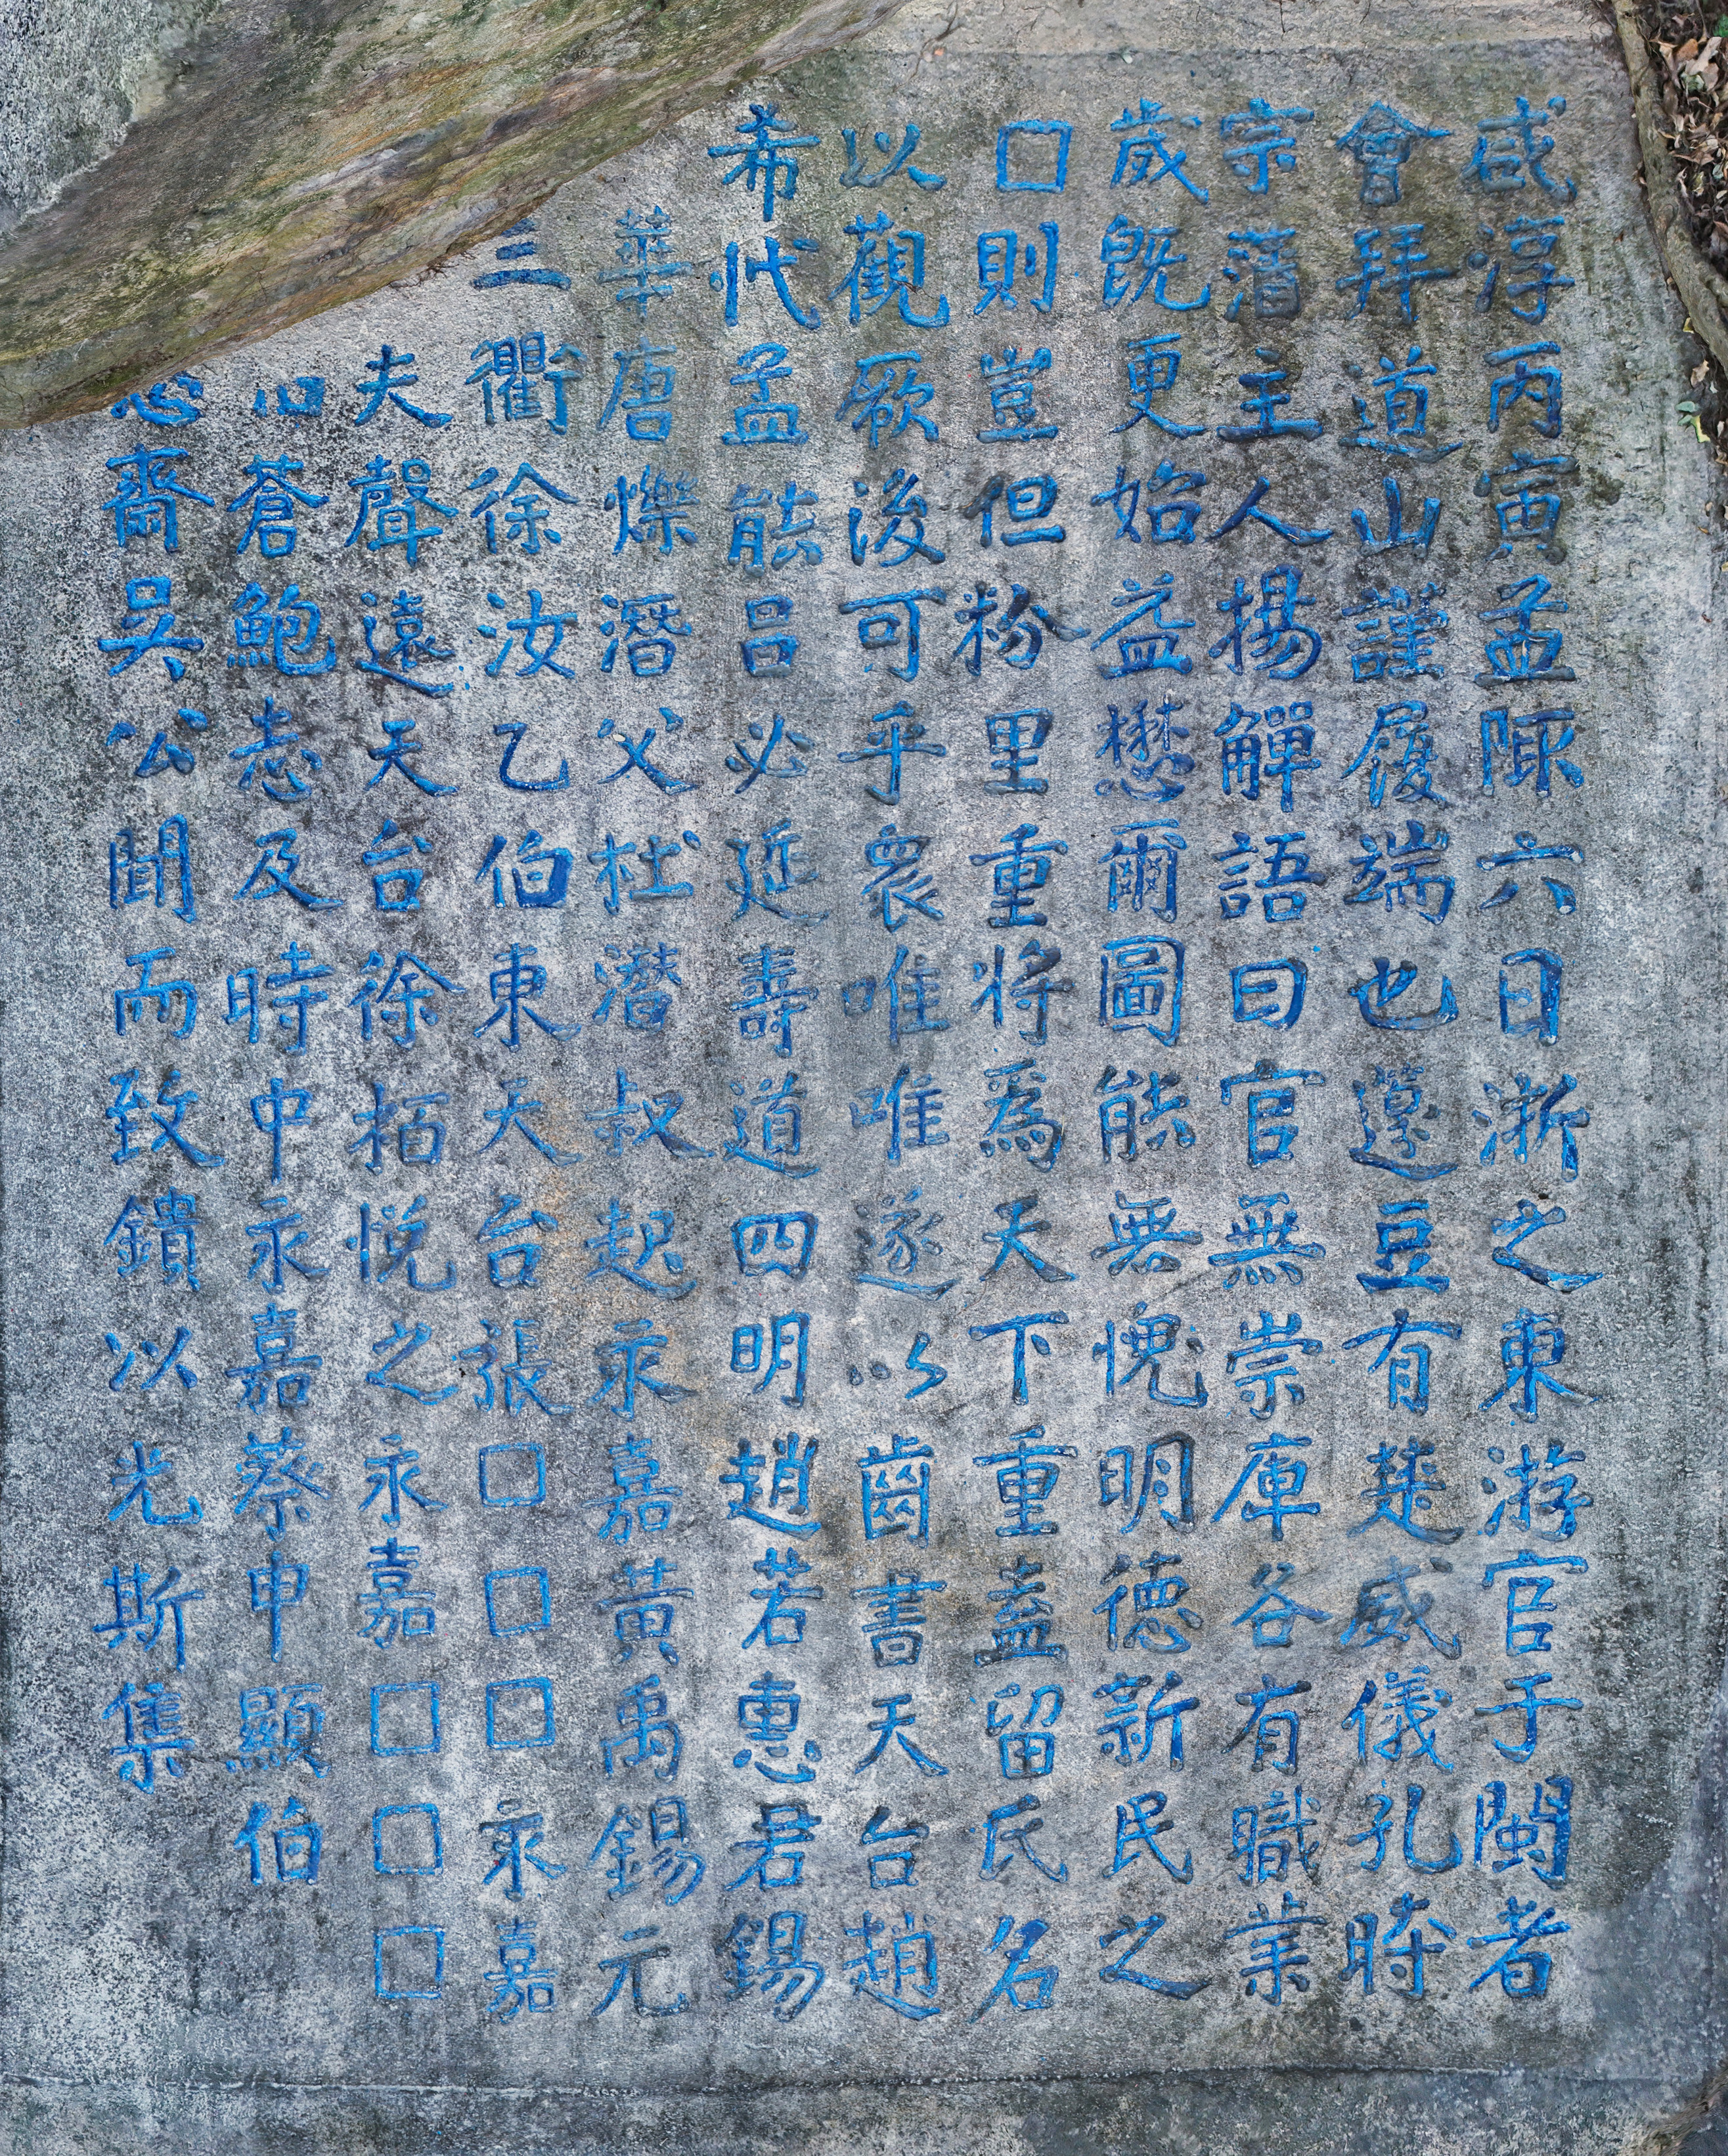 咸淳丙寅孟陬六日浙之東游官于閩者
會拜道山謹履端也籩豆有楚威儀孔時
宗藩主人揚觶語曰官無崇庳各有職業
歲既更始益懋爾圖能無愧明德新民之
□則豈但粉里重將為天下重盍留氏名
以觀厥後可乎衆唯唯遂以齒書天台趙
希代孟能吕必近壽道四明趙若惪君錫
華唐爍潛父杜濳叔起永嘉黃禹錫元
三衢徐汝乙伯東天台張□□□永嘉
夫聲遠天台徐栢悅之永嘉□□□
蒼鮑志及時中永嘉蔡申顯伯
齋吳公聞而致鐀以光斯集